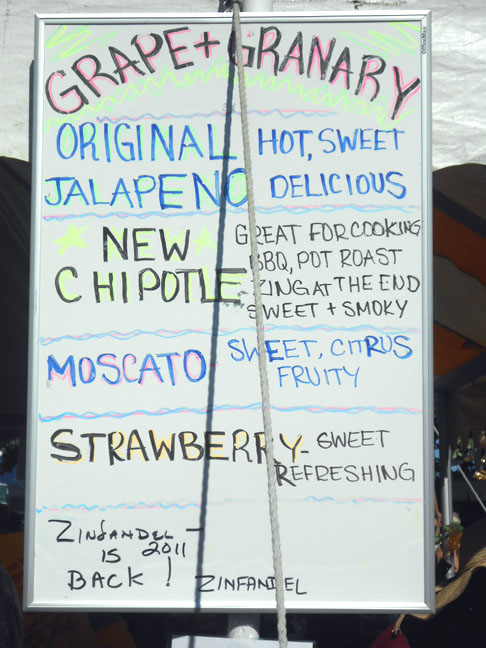 GRAPE + GRANARY
ORIGINAL JALAPENO
HOT, SWEET
DELICIOUS
NEW
CHIPOTLE
GREAT FOR COOKING
BBQ, POT ROAST
ZING AT THE END
SWEET + SMOKY
MOSCATO
SWEET, CITRUS
FRUITY
STRAWBERRY-
SWEET
REFRESHING
ZINFANDEL -
IS 2011
BACK !
ZINFANDEL